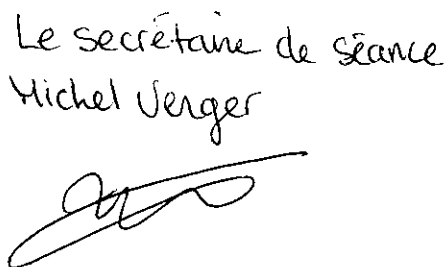 Le secrétaire de séance
Michel Verger